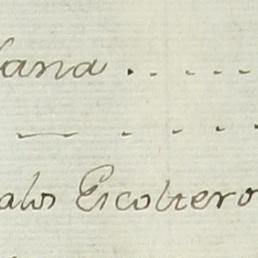 fana . . . . .
— . . . .
alos Escobero